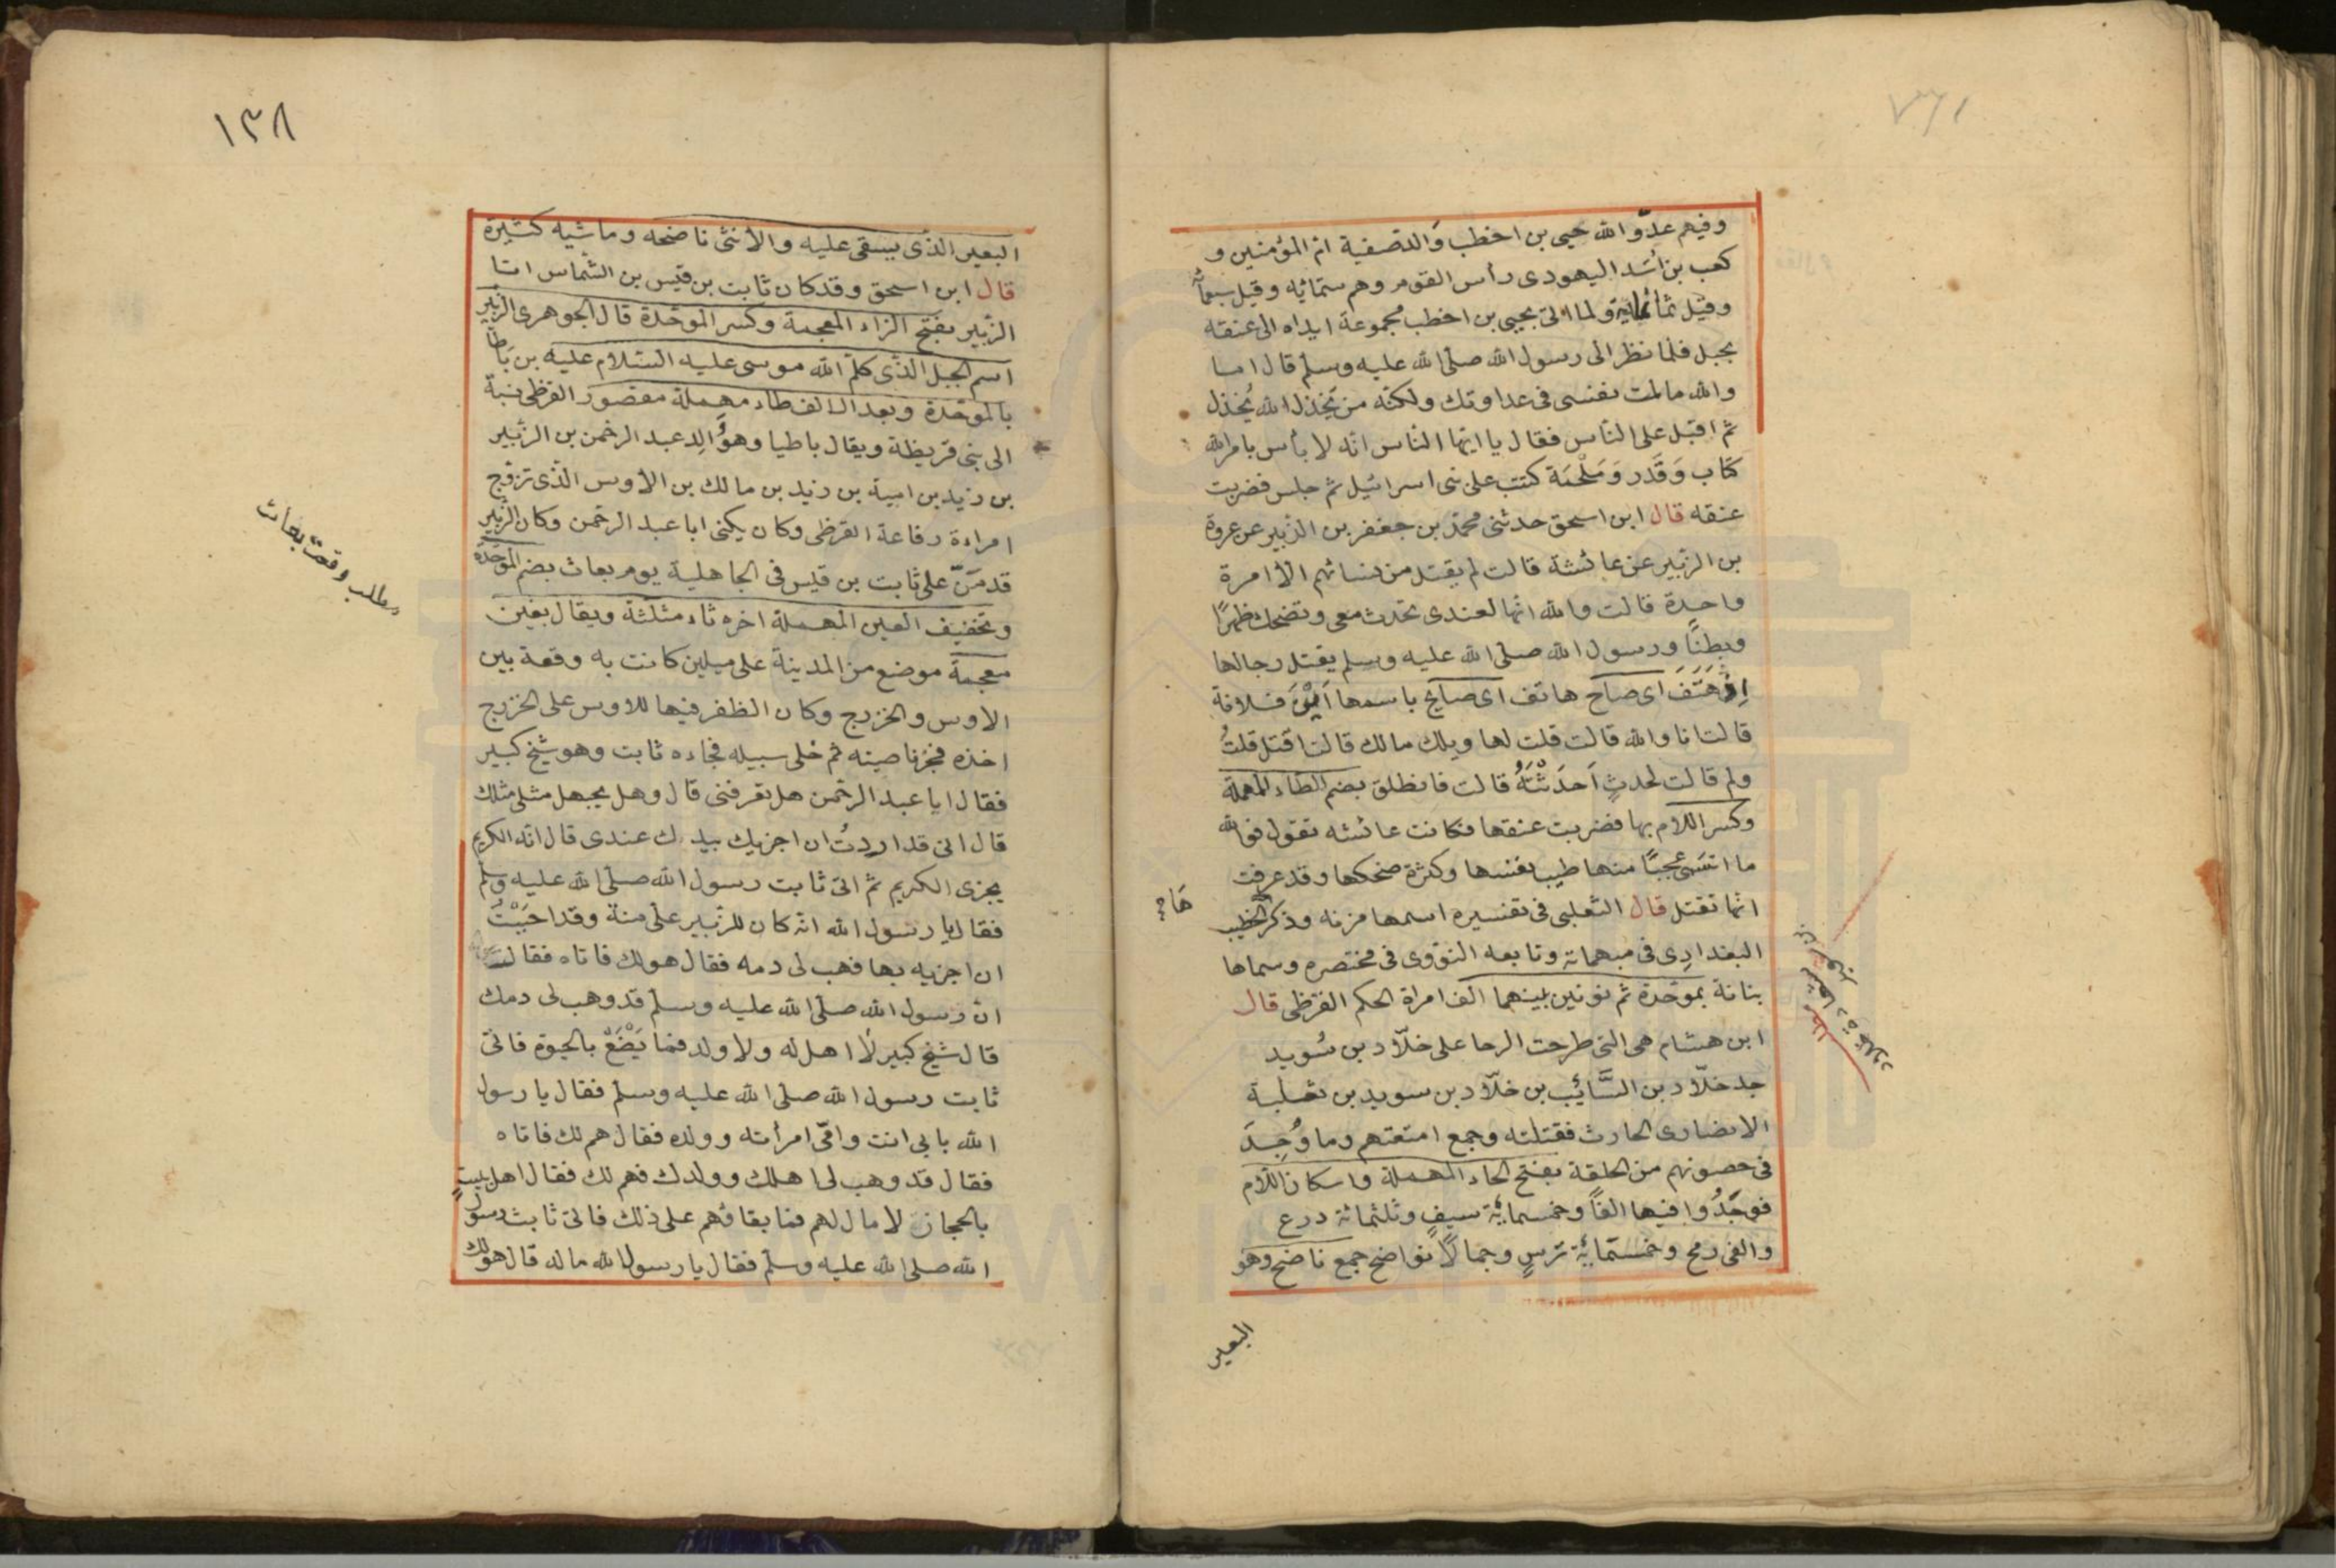 وفيهم عدو الله حيي بن اخطب والد صفية ام المؤمنين و
كعب بن اسد اليهودى رأس القوم وهم ستمائه وقيل سبعمأ
وقيل ثمانمائة ولما اتى بحيي بن اخطب مجموعة ايداه الى عنقه
بحبل فلما نظر الى رسول الله صلى الله عليه وسلم قال اما
والله مالمت نفسى فى عداوتك ولكنه من يخذل الله يُخذل
ثم اقبل على الناس فقال يا ايها الناس انه لا بأس بامر الله
كتاب وَقَدر وَمَلْحَمَة كتبت على بنى اسرائيل ثم جلس فضربت
عنقه قال ابن اسحق حدثنى محمد بن جعفر بن الزبير عن عروة
بن الزبير عن عائشة قالت لم يقتل من نسائهم الا امرة
واحدة قالت والله انها لعندى تحدث معى وتضحك ظهرًا
وبطنًا ورسول الله صلى الله عليه وسلم يقتل رجالها
اِذْ هَتَفَ اى صاح هاتف اى صايح باسمها اَيْنَ فلانة
قالت انا والله قالت قلت لها ويلك مالك قالت اقتل قلتُ
ولم قالت لحدثٍ اَحدَثْتُهُ قالت فانطلق بضم الطاء المهملة
وكسر اللام بها فضربت عنقها فكانت عائشه تقول فوالله
ما انسَى عجبًا منها طيب نفسها وكثرة ضحكها وقد عرفت
انها تقتل قال الثعلبى فى تفسيره اسمها مزنه وذكر الخطيب
البغدادِى فى مبهماته وتابعه النووى فى مختصره وسماها
بنانة بموحدة ثم نونين بينهما الف امراة الحكم القرظى قال
ابن هشام هى التى طرحت الرحا على خلّاد بن سُويد
جد خلّاد بن السَّايُب بن خلّاد بن سويد بن ثعلبة
الانصارى الحارث فقتلته وجمع امتعتهم وما وُجِدَ
فى حصونهم من الحلقة بفتح الحاء المهملة واسكان اللام
فوجَدُوا فيها الفًا وخمسمائة سيفٍ وثلثمائة درع
والفى رمح وخمسمائة ترسٍ وجمالًا نواضح جمع ناضح وهو
البعير
١٣٨
البعير الذى يسقى عليه والأنثى ناضحه وماشيه كثيرة
قال ابن اسحق وقد كان ثابت بن قيس بن الشماس اتا
الزبير بفتح الزاء المعجمة وكسر الموحدة قال الجوهرى الزبير
اسم الجبل الذى كلم الله موسى عليه السلام عليه بن بَاطا
بالموحدة وبعد الالف طاء مهملة مقصور القرظى نسبة
الى بنى قريظة ويقال باطيا وهو وَالِد عبد الرحمن بن الزبير
بن زيد بن امية بن زيد بن مالك بن الأوس الذى تزوج
امراءة رفاعة القرظى وكان يكنى ابا عبد الرحمن وكان الزبير
قد مَنّ على ثابت بن قيس فى الجاهلية يوم بعاث بضم الموحدة
وتخفيف العين المهملة اخره ثاء مثلثة ويقال بغين
معجمة موضع من المدينة على ميلين كانت به وقعة بين
الاوس والخزرج وكان الظفر فيها للاوس على الخزرج
اخذه فجز ناصيته ثم خلى سبيله فجاءه ثابت وهو شيخ كبير
فقال ايا عبد الرحمن هل تعرفنى قال وهل يجهل مثلى مثلك
قال انى قد اردتُ ان اجزيك بيدك عندى قال انه الكريم
يجزى الكريم ثم اتى ثابت رسول الله صلى الله عليه وسلم
فقال يا رسول الله انه كان للزبير على منة وقد احبَبْتُ
ان اجزيه بها فهب لى دمه فقال هو لك فاتاه فقال
ان رسول الله صلى الله عليه وسلم قد وهب لى دمك
قال شيخ كبير لا اهل له ولا ولد فما يَصْنَعُ بالحيوة فاتى
ثابت رسول الله صلى الله عليه وسلم فقال يا رسول
الله بابى انت وامّى امرأته وولده فقال هم لك فاتاه
فقال قد وهب لى اهلك وولدك فهم لك فقال اهل بيتٍ
بالحجاز لا مال لهم فما بقاؤهم على ذلك فاتى ثابث رسول
الله صلى الله عليه وسلم فقال يا رسول الله ماله قال هو لك
مطلب وقعة بعاث